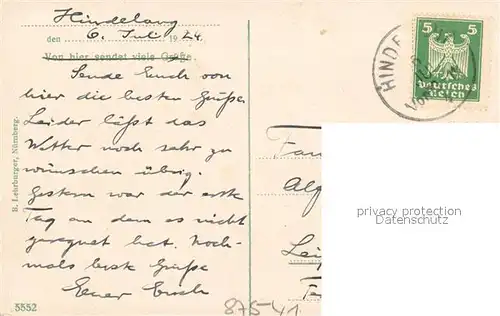 Hindelang
den 6. Jul 1924
Von hier sendet viele Grüße
Sende Euch von
hier die besten Grüße
Leider läßt das
Wetter noch sehr zu
wünschen übrig.
Gestern war der erste
Tag an dem es nicht
geregnet hat. Noch-
mals beste Grüße
Euer
B. Lehrburger, Nürnberg.
5552
87541
HINDE
5 5
Deutsches
Reich
Fam
Leip
privacy protection
DELCAMPE